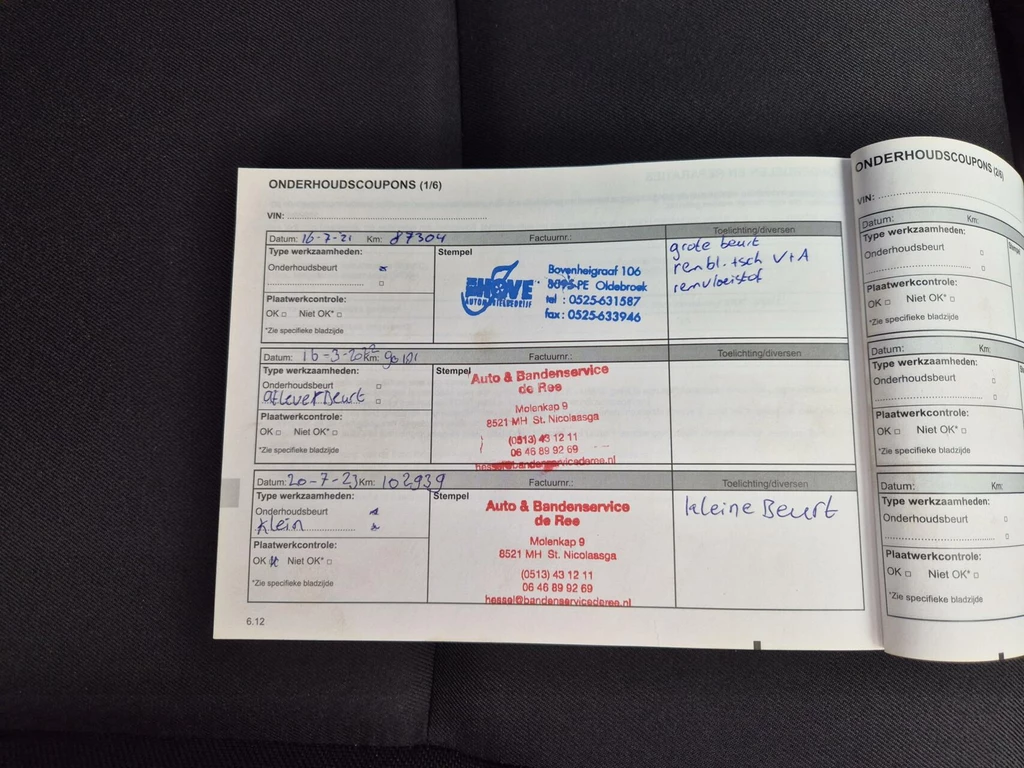 ONDERHOUDSCOUPONS (1/6)
VIN:
Datum: 16-7-21 Km: 87304 Factuurnr.: Toelichting/diversen
Type werkzaamheden: Stempel
Onderhoudsbeurt
Plaatwerkcontrole:
OK Niet OK*
*Zie specifieke bladzijde
HOVE
AUTOMOBIELBEDRIJF
Bovenheigraaf 106
8095 PE Oldebroek
tel : 0525-631587
fax: 0525-633946
grote beurt
remvloeistof
Datum: 16-3-2022 Km: Factuurnr.: Toelichting/diversen
Type werkzaamheden: Stempel
Onderhoudsbeurt
afleverBeurt
Plaatwerkcontrole:
OK Niet OK*
*Zie specifieke bladzijde
Auto & Bandenservice
de Ree
Molenkap 9
8521 MH St. Nicolaasga
(0513) 43 12 11
06 46 89 92 69
hessel@bandenservicederee.nl
Datum: 20-7-23 Km: 102939 Factuurnr.: Toelichting/diversen
Type werkzaamheden: Stempel
Onderhoudsbeurt
Klein
Plaatwerkcontrole:
OK Niet OK*
*Zie specifieke bladzijde
Auto & Bandenservice
de Ree
Molenkap 9
8521 MH St. Nicolaasga
(0513) 43 12 11
06 46 89 92 69
hessel@bandenservicederee.nl
kleine Beurt
6.12
ONDERHOUDSCOUPONS (2/6)
VIN:
Datum: Km:
Type werkzaamheden:
Onderhoudsbeurt
Plaatwerkcontrole:
OK Niet OK*
*Zie specifieke bladzijde
Datum: Km:
Type werkzaamheden:
Onderhoudsbeurt
Plaatwerkcontrole:
OK Niet OK*
*Zie specifieke bladzijde
Datum: Km:
Type werkzaamheden:
Onderhoudsbeurt
Plaatwerkcontrole:
OK Niet OK*
*Zie specifieke bladzijde